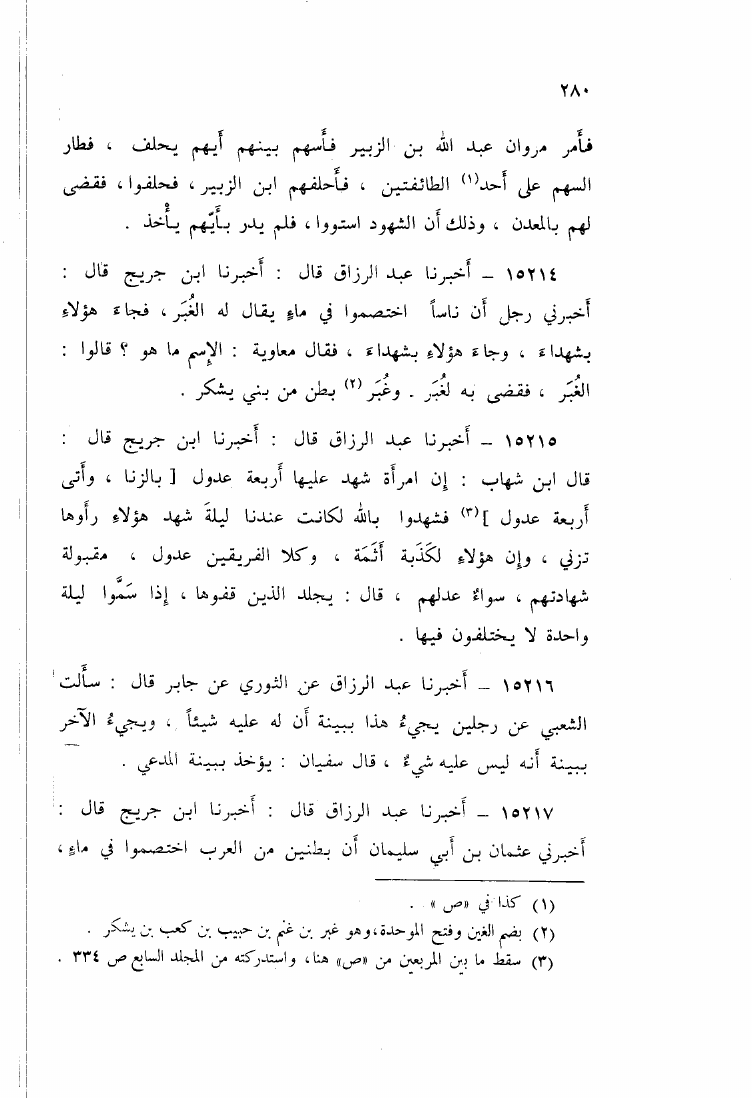 ٢٨٠
فأمر مروان عبد الله بن الزبير فأسهم بينهم أيهم يحلف ، فطار
السهم على أحد(١) الطائفتين ، فأحلفهم ابن الزبير ، فحلفوا ، فقضى
لهم بالمعدن ، وذلك أن الشهود استووا ، فلم يدر بأيّهم يأْخذ .
١٥٢١٤ – أخبرنا عبد الرزاق قال : أخبرنا ابن جريج قال :
أخبرني رجل أن ناساً اختصموا في ماءٍ يقال له الغُبَر ، فجاءَ هؤلاءِ
بشهداءَ ، وجاءَ هؤلاءِ بشهداءَ ، فقال معاوية : الإسم ما هو ؟ قالوا :
الغُبَر ، فقضى به لغُبَر . وغُبَر(٢) بطن من بني يشكر .
١٥٢١٥ – أخبرنا عبد الرزاق قال : أخبرنا ابن جريج قال :
قال ابن شهاب : إن امرأة شهد عليها أربعة عدول [ بالزنا ، وأتى
أربعة عدول ](٣) فشهدوا بالله لكانت عندنا ليلةَ شهد هؤلاءِ رأوها
تزني ، وإن هؤلاءِ لكَذَبة أثَمَة ، وكلا الفريقين عدول ، مقبولة
شهادتهم ، سواءٌ عدلهم ، قال : يجلد الذين قفوها ، إذا سَمَّوا ليلة
واحدة لا يختلفون فيها .
١٥٢١٦ – أخبرنا عبد الرزاق عن الثوري عن جابر قال : سألت
الشعبي عن رجلين يجيءُ هذا ببينة أن له عليه شيئاً ، ويجيءُ الآخر
ببينة أنه ليس عليه شيءٌ ، قال سفيان : يؤخذ ببينة المدعي .
١٥٢١٧ – أخبرنا عبد الرزاق قال : أخبرنا ابن جريج قال :
أخبرني عثمان بن أبي سليمان أن بطنين من العرب اختصموا في ماءٍ ،
(١) كذا في «ص» .
(٢) بضم الغين وفتح الموحدة، وهو غبر بن غنم بن حبيب بن كعب بن يشكر .
(٣) سقط ما بين المربعين من «ص» هنا، واستدركته من المجلد السابع ص ٣٣٤ .